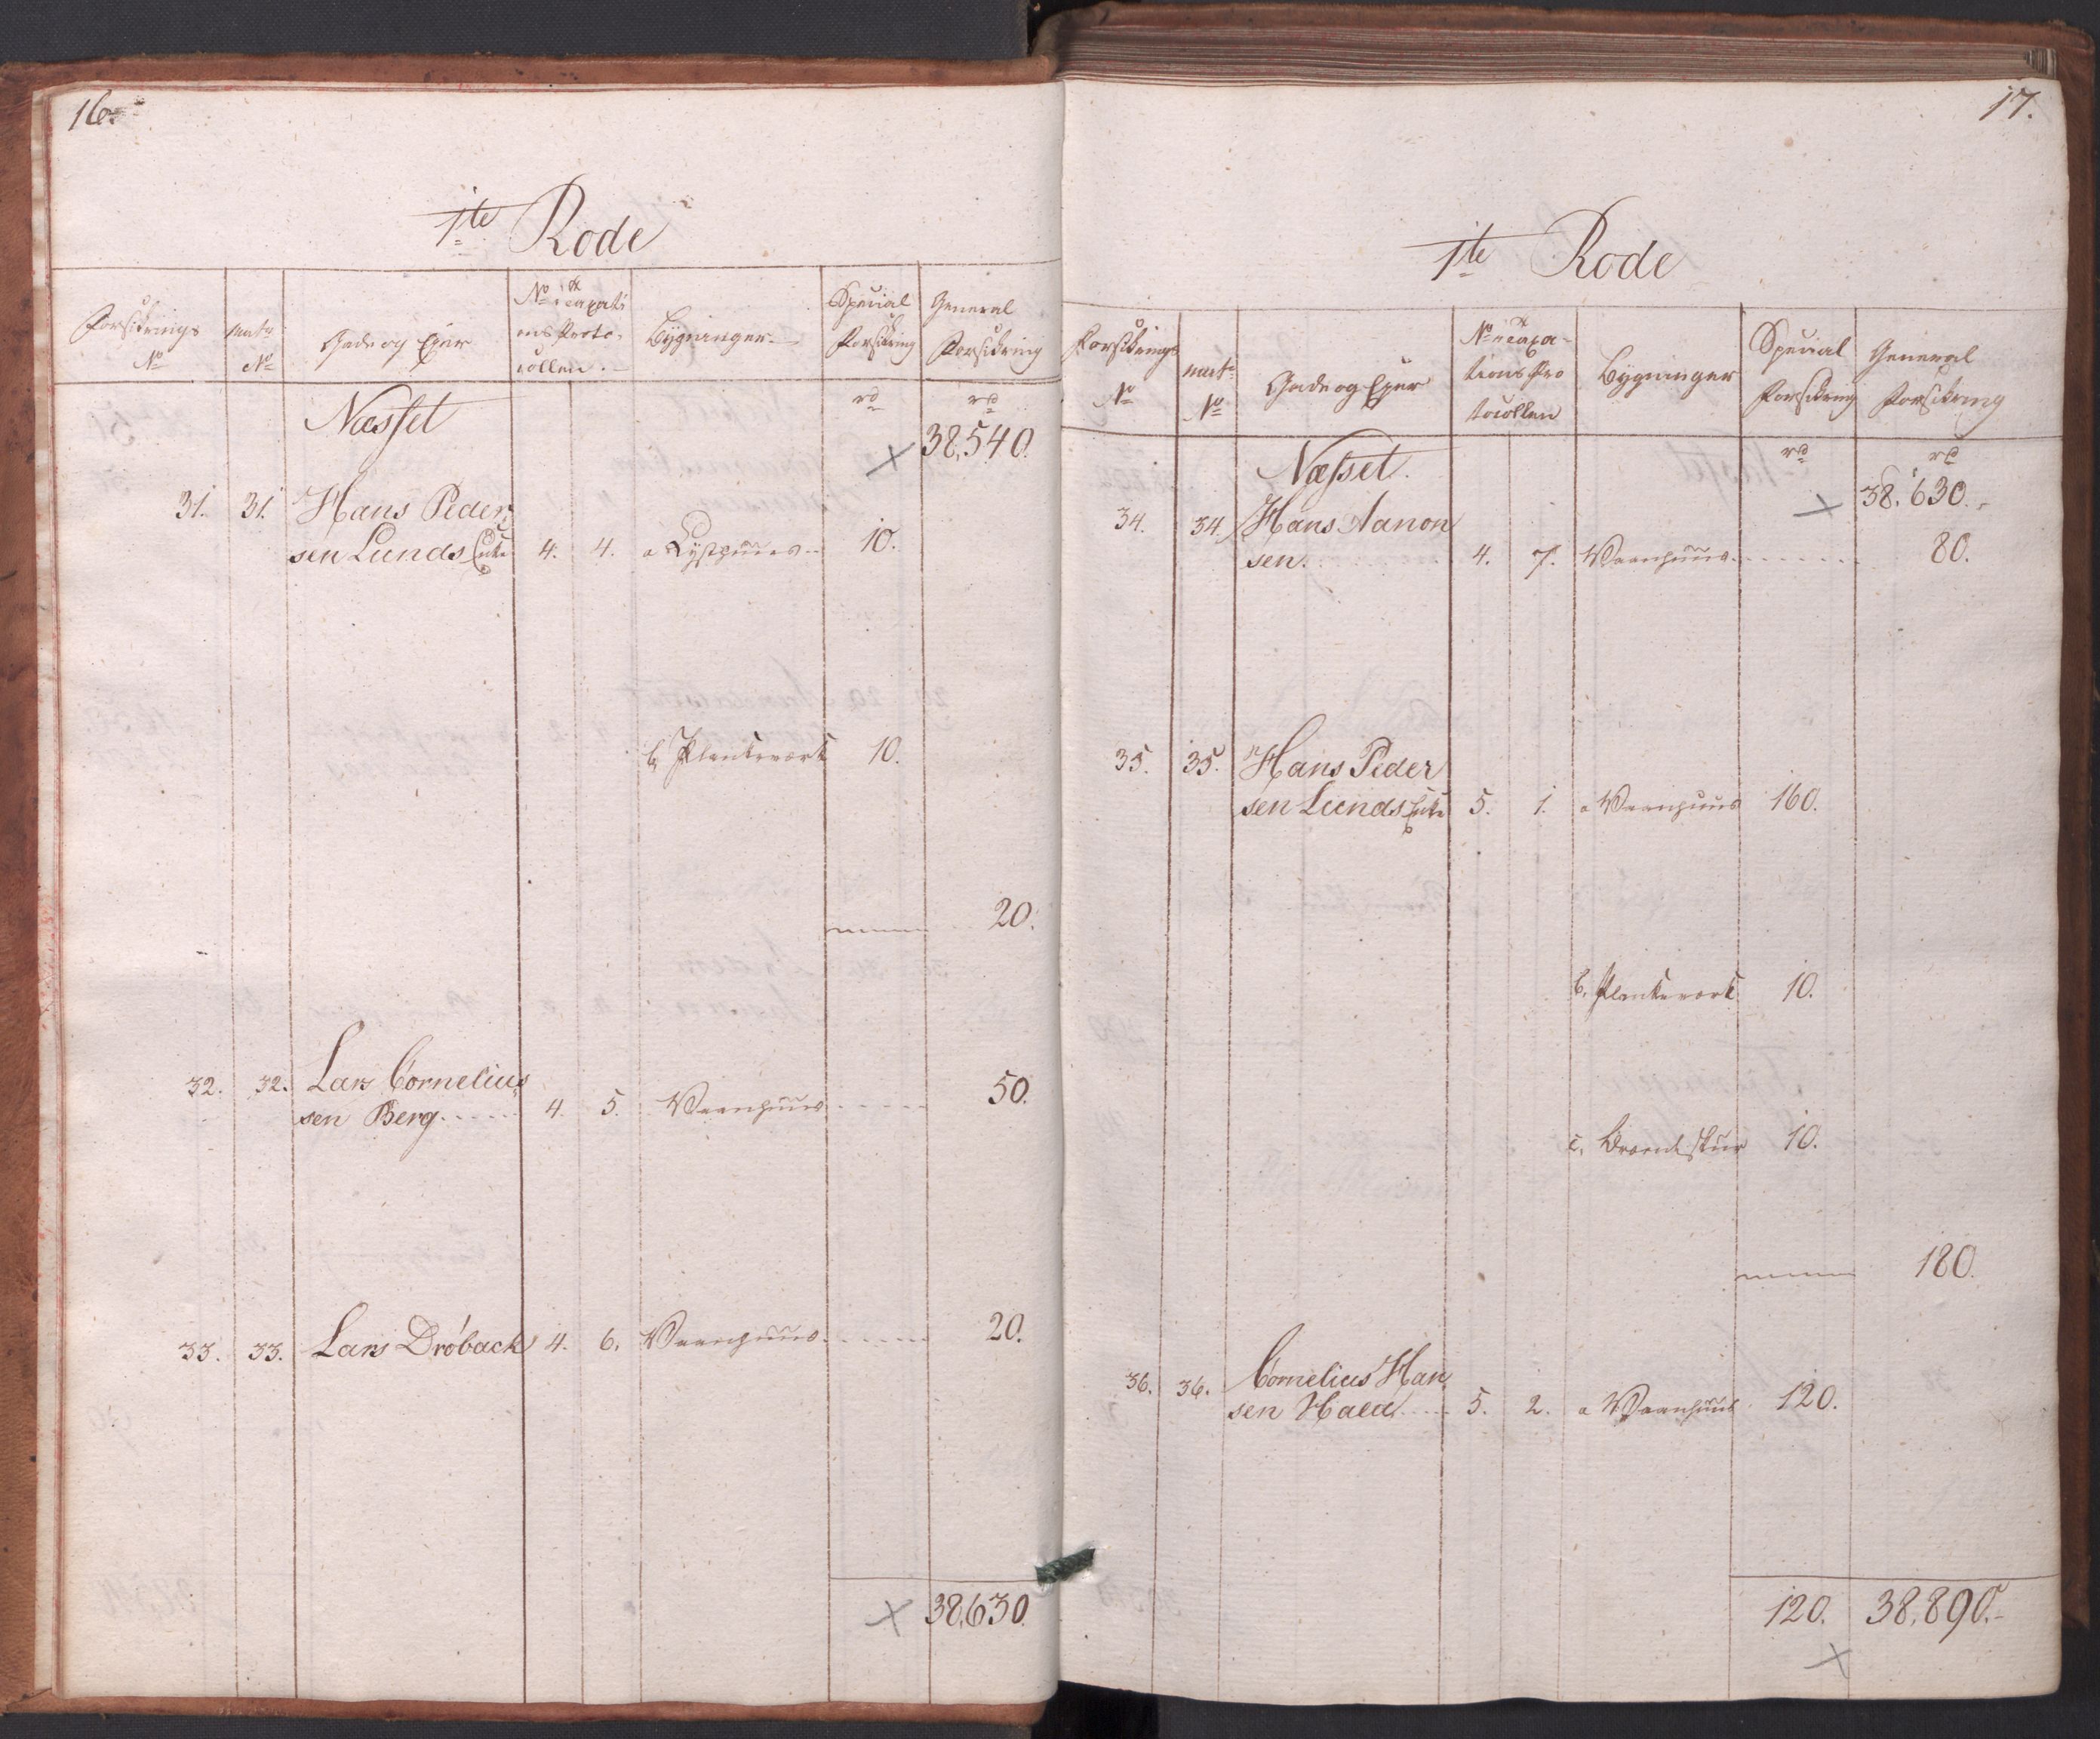 16.
1te Rode
Forsikrings No
Matr No
Gade og Ejer
No i Taxati
ons Proto-
collen.
Bygninger
Special Forsikring
General Forsikring
Næsset
rd
rd
38,540.
31. 31. Hans Peder
sen Lunds Enke 4. 4. a 10.
b, Plankeværk 10.
20.
32. 32. Lars Cornelius
sen Berg 4. 5. Vaanhuus 50.
33. 33. Lars Dröback 4. 6. Vaanhuus 20.
38,630.
17.
1te Rode
Forsikrings No
Matr No
Gade og Ejer
No i Taxa-
tions Pro
tocollen
Bygninger
Special Forsikring
General Forsikring
Næsset.
rd
rd
38,630.
34. 34. Hans Aanon
sen. 4. 7. Vaanhuus 80.
35. 35. Hans Peder
sen Lunds Enke 5. 1. a Vaanhuus 160.
b, Plankeværk 10.
c, Brændeskuur 10.
180.
36. 36. Cornelius Han
sen 5. 2. a Vaanhuus 120.
120. 38,890.